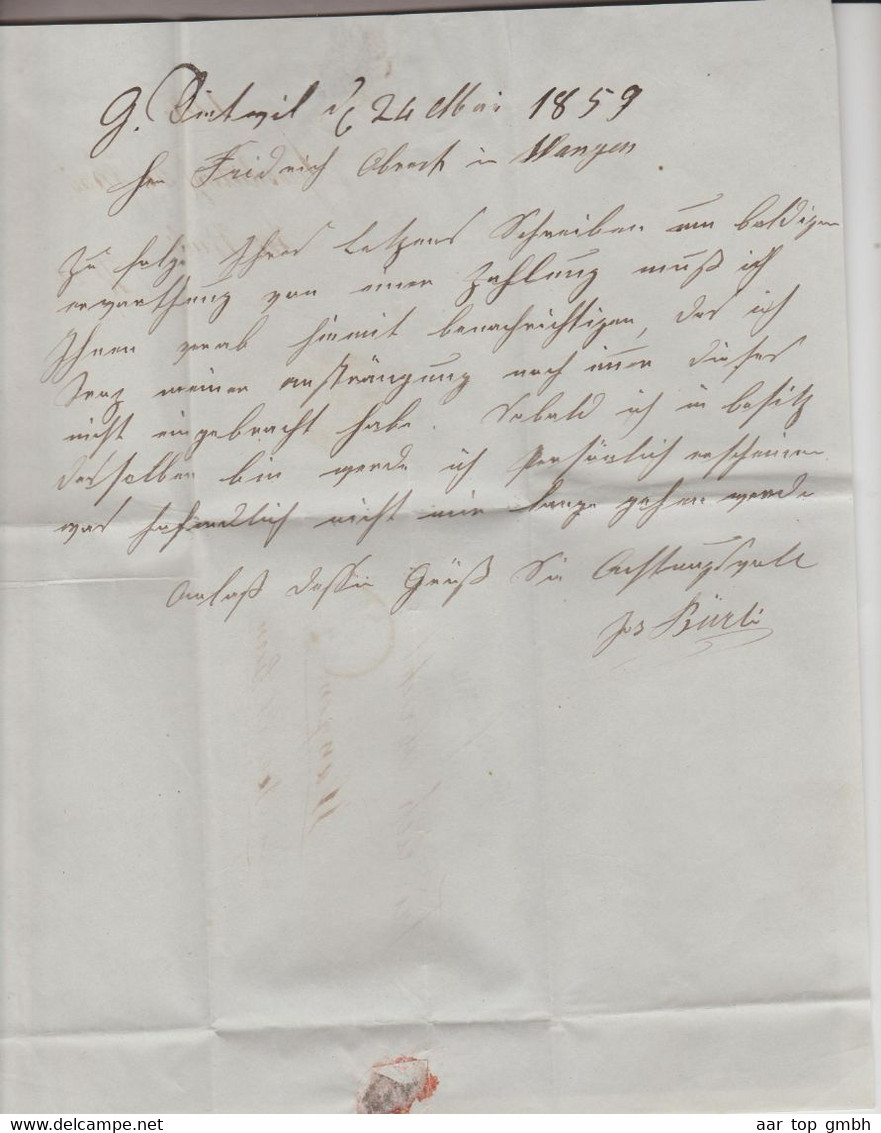 G. Dietwil d 24 Mai 1859
Herr Fridrich Obrecht in Wangen
Zu folge Ihres Letzens Schreiben um baldigen
erwarthung von einer Zahlung muß ich
Ihnen vorab hiemit benachrichtigen, das ich
Troz meiner ansträngung noch immer dieses
nicht eingebracht habe. Sobald ich in besitz
desselben bin werde ich Persönlich erscheinen
was hofendlich nicht mir lange gehen werde
Anlaß dessen Grüß Sie Achtungsvoll
Jos Bürli
aar top gmbh
www.delcampe.net